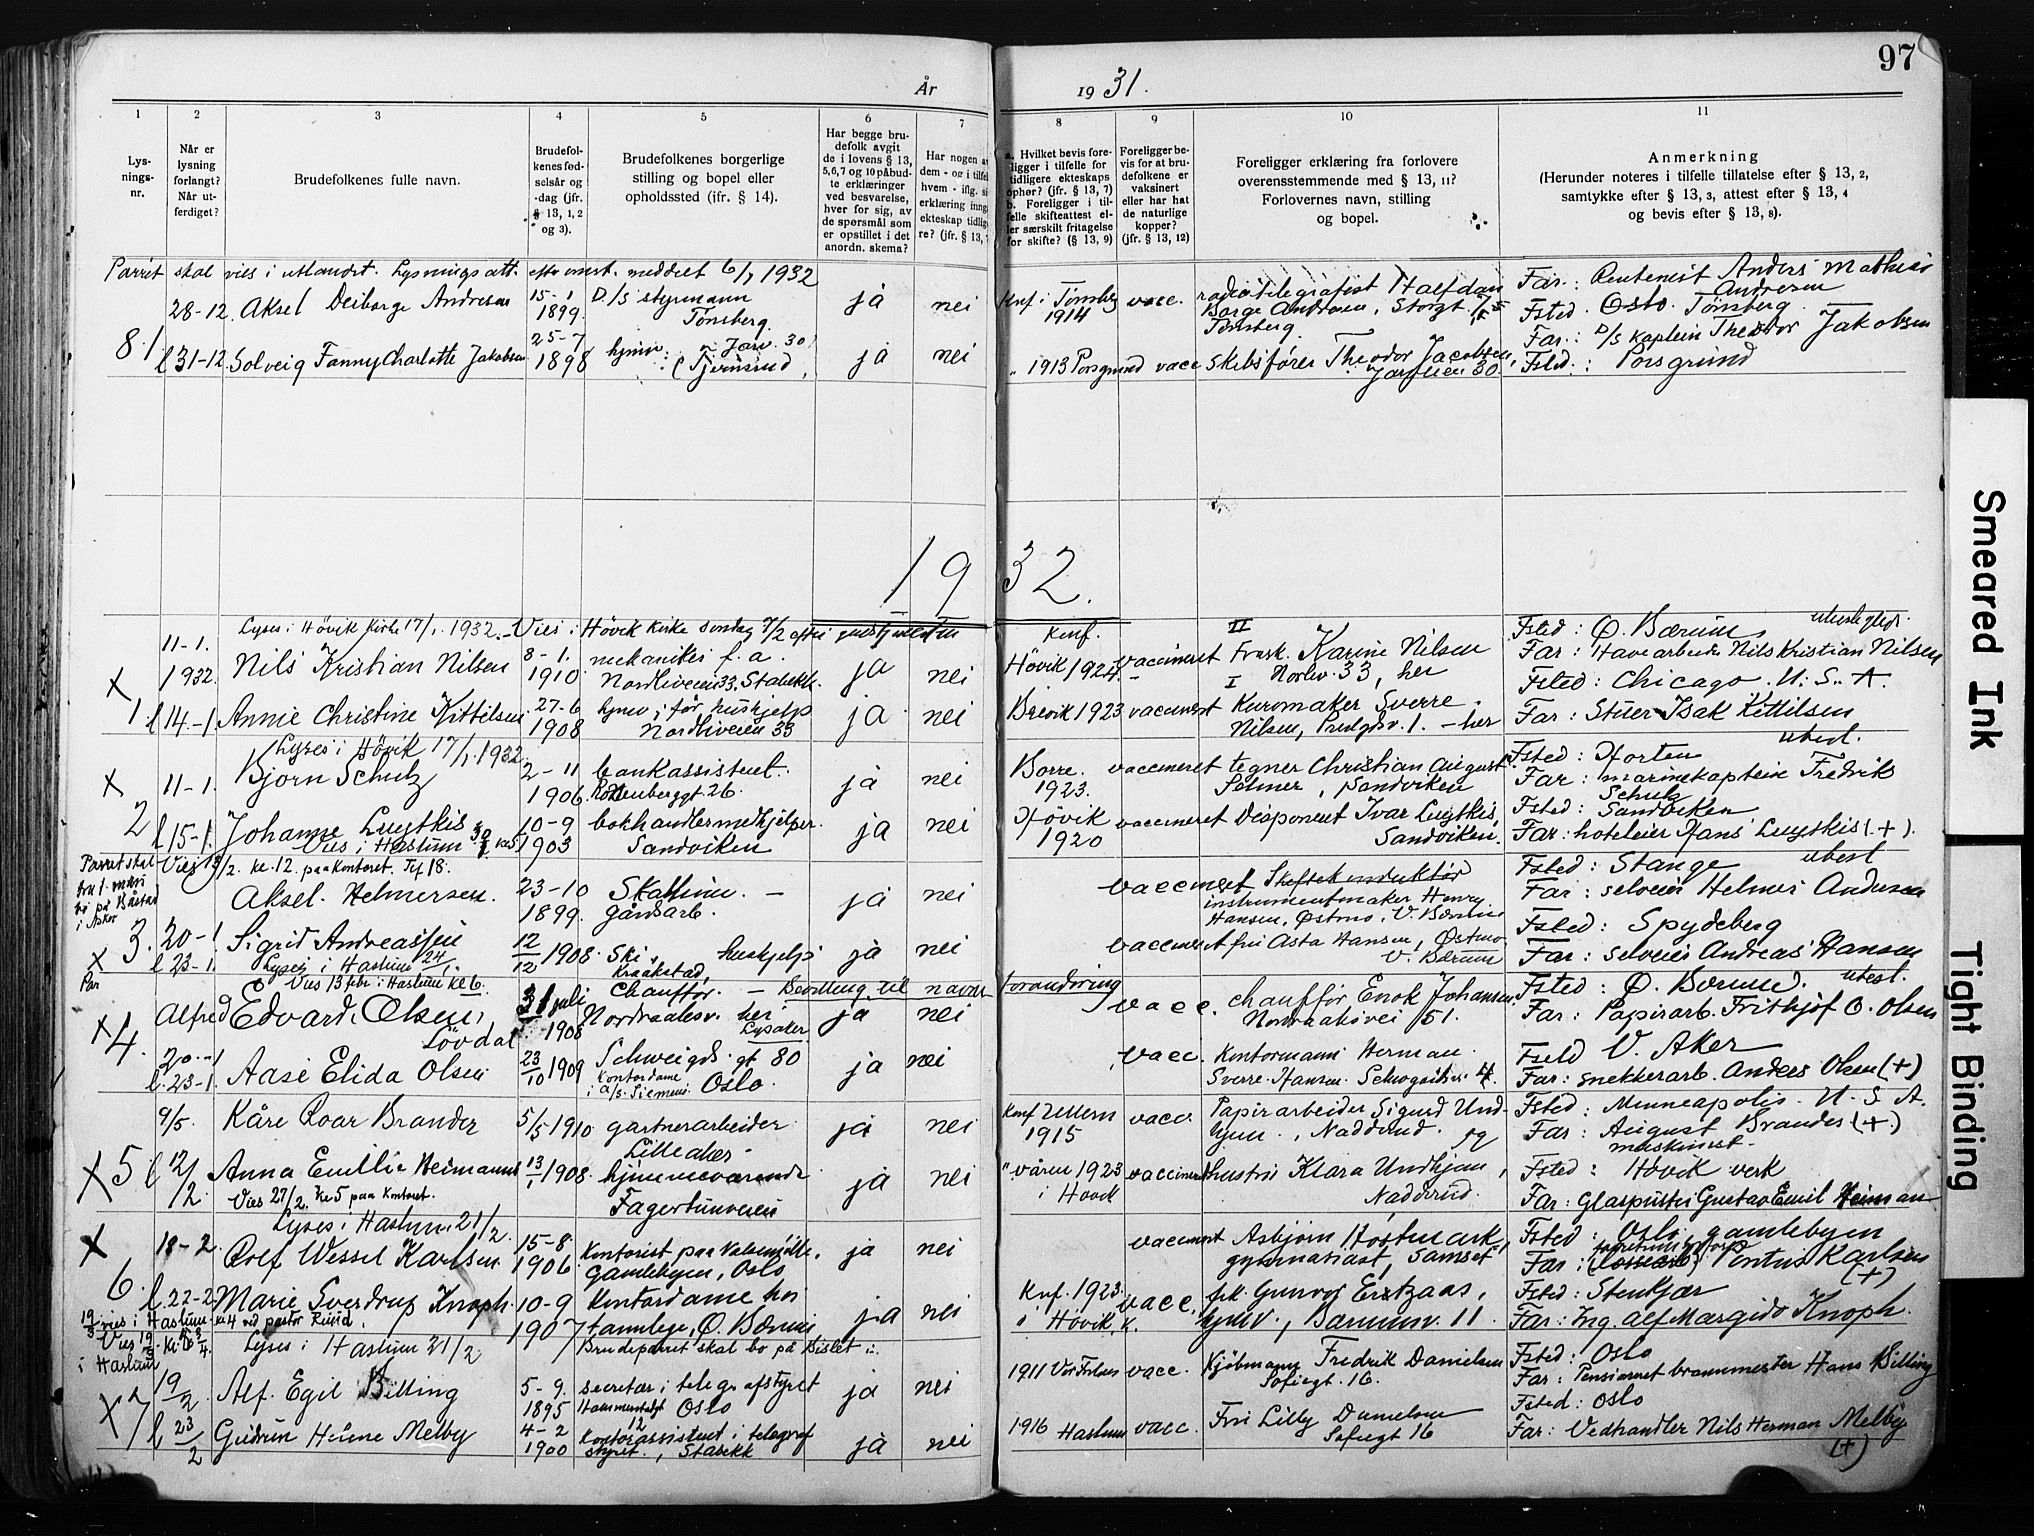 97
År 1931.
1
2
3
4
5
6
7
8
9
10
11
Lysningsnr.
Når er lysning forlangt? Når utferdiget?
Brudefolkenes fulle navn.
Brudefolkenes fødselsår og -dag (jfr. § 13, 1, 2 og 3).
Brudefolkenes borgerlige stilling og bopel eller opholdssted (jfr. § 14).
Har begge brudefolk avgit de i lovens § 13, 5,6,7 og 10 påbudte erklæringer ved besvarelse, hver for sig, av de spørsmål som er opstillet i det anordn. skema?
Har nogen av dem - og i tilfelle hvem - iflg. si erklæring inng ekteskap tidligere? (jfr. § 13,
a. Hvilket bevis foreligger i tilfelle for tidligere ekteskaps ophør? (jfr. § 13, 7) b. Foreligger i tilfelle skifteattest eller særskilt fritagelse for skifte? (§ 13, 9)
Foreligger bevis for at brudefolkene er vaksinert eller har hat de naturlige kopper? (jfr. § 13, 12)
Foreligger erklæring fra forlovere overensstemmende med § 13, 11? Forlovernes navn, stilling og bopel.
Anmerkning
(Herunder noteres i tilfelle tillatelse efter § 13, 2, samtykke efter § 13, 3, attest efter § 13, 4 og bevis efter § 13, 8).
Parret skal vies i utlandet. Lysningsatt. meddelt 6/1 1932
28-12. Aksel Deiborge Andresen 15-1 1899. D/S styrmann Tønsberg. ja nei Konf. i Tønsberg 1914 vacc. radiotelegrafist Halfdan Borge Andresen, Storgt. 75 Tønsberg. Far: Rentenist Anders Mathias Andresen Fsted. Oslo. Tønsberg.
81 l 31-12. Solveig Fanny Charlotte Jakobsen 25-7 1898 hjemv: Jarv. 30 ja nei " 1913 Porsgrund vacc Skibsfører Theodor Jacobsen, 30. Far: D/S Kaptein Theodor Jakobsen Fsted.: Porsgrund
1932.
Lyses i Høvik Kirke 17/1. 1932. Vies i Høvik Kirke søndag 7/2 efter gudstjenesten
X 11-1. 1932. Nils Kristian Nilsen 8-1. 1910 mekaniker f. a. Nordliveien 33, Stabekk. ja nei Konf. Høvik 1924. vaccineret II Frøk. Karine Nilsen Norliv. 33, her Fsted: Ø. Bærum Far: Havearbeider Nils Kristian Nilsen
1 l 14-1. Annie Christine Kittilsen 27-6 1908 hjemv; før hushjelp Nordliveien 33 ja. nei Brevik 1923 vaccineret I Kuromaker Sverre Nilsen, 1. - her Fsted: Chicago. U. S. A. Far: Stuer Isak Kittilsen
Lyses i Høvik 17/1. 1932.
X 11-1. Bjørn Schulz 2-11 1906. bankassistent. 26. ja nei Borre. 1923. vaccineret tegner Christian August Selmer, Sandviken Fsted: Horten Far: marinekaptein Fredrik Schulz ubesl.
2 l 15-1. Johanne Luytkis 10-9 1903 bokhandlermedhjelper. Sandviken ja nei Høvik 1920 vaccineret Disponent Ivar Luytkis, Sandviken. Fsted: Sandviken Far: hoteleier Hans Luytkis (+).
Vies i Haslum 30/1 kl 5
Parret skal
Vies 13/2. kl. 12. paa Kontoret. Tlf 18.
Aksel. Helmersen. 23-10 1899. gårdsarb. ja nei vaccineret instrumentmaker Henry Hansen, Østmo. V. Bærum Fsted: Stange ubesl Far: selveier Helmer Andersen
X 3. 20-1 l 23-1. Sigrid Andreassen 12/12 1908. Ski, Kraakstad, huskjelp ja nei vaccineret frk Asta Hansen, Østmo V. Bærum Fsted: Spydeberg Far: selveier Andreas Hansen
Lyses i Haslum 24/1.
Vies 13 febr i Haslum kl 6.
X 4. Alfred Edvard Olsen, Lövdal 31 juli 1908 Chauffør. - Bevilling til navneforandring Nordraakesv. her Lysaker ja nei vacc. chauffør Enok Johansen Nordraakesvei 51. Fsted: Ø. Bærum. ubesl. Far: Papirarb. Frithjof O. Olsen
20-1 l. 23-1. Aase Elida Olsen 23/10 1909 Schweigds. gt 80 Kontordame i A/S. Siemens. Oslo. ja nei vacc. Kontormann Herman Sverre Hansen. Fsted V. Aker Far: snekkerarb. Anders Olsen (+)
9/5 Kåre Roar Brander 5/5 1910 gartnerarbeider Lilleaker ja nei Konf Ullern 1915 vacc Papirarbeider Sigurd Undhjem, Nadderud. og Fsted: Minneapolis. U. S. A. Far: August Brander (+) maskinist
X 5 l 12/2. Anna Emilie Heimann 13/1 1908. hjemmeværende Fagertunveien ja nei " våren 1923 i Høvik vaccineret hustru Klara Undhjem, Nadderud. Fsted: Høvik verk Far: Glaspuster Gustav Emil Heiman
Vies 27/2. kl 5 paa Kontoret.
Lyses i Haslum 21/2.
X 18-2. Rolf Wessel Karlsen 15-8. 1906. Kontorist paa Gamlebyen, Oslo ja nei vaccineret Asbjørn Høstmark, gymnasiast, Fsted: Oslo, gamlebyen Far: Pontus Karlsen (+)
6. l. 22-2 Marie Sverdrup Knoph. 10-9 1907 Kontordame hos tannlege, Ø. Bærum ja nei Knf. 1923. i Høvik K. vacc. frk. Gunvor Ertzaas, hjmv., Bærumsv. 11. Fsted: Stenkjær Far: Ing. Alf Margido Knoph.
19/3 vies i Haslum kl 4 ved pastor Rund. Brudeparret skal bo på Bislet
Lyses i Haslum 21/2
X 19/2 Alf. Egil Billing 5-9. 1895 secretær i telegrafstyret Oslo ja nei 1911 vacc. Kjøbmann Fredrik Danielsen Sofiegt. 16. Fsted: Oslo Far: Pensioneret brannmester Hans Billing
7 l 23/2 Gudrun Helene Melby 4-2 1900 Kontorassistent i telegrafstyret, Stabekk ja nei 1916 Haslum vacc. Frú Lilly Danielsen Sofiegt 16 Fsted: Oslo Far: Vedhandler Nils Herman Melby (+)
Smeared Ink
Tight Binding